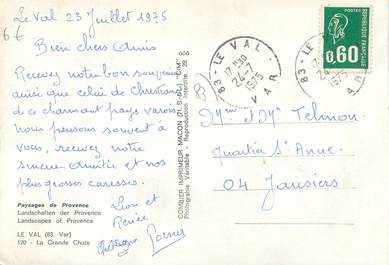 Le Val 23 Juillet 1975
6€
Bien chers Amis
Recevez notre bon souvenir
ainsi que celui de Christian
de ce charmant pays varois.
Nous pensons souvent à
vous, recevez notre
sincère Amitié et nos
plus grosses caresses.
Léon et
Renée
Christiane
Paysages de Provence
Landschaften der Provence
Landscapes of Provence
LE VAL (83. Var)
120 - La Grande Chute
COMBIER IMPRIMEUR MACON (71. S.-&-L.) "CIM"
Photographie Véritable - Reproduction Interdite
POSTES
0,60
83 - LE VAL
17 H30
24-7
1975
VAR
83 - LE
17
24
1975
AR
Mme et Mr Telmon
Quartier Ste Anne
04 Jausiers